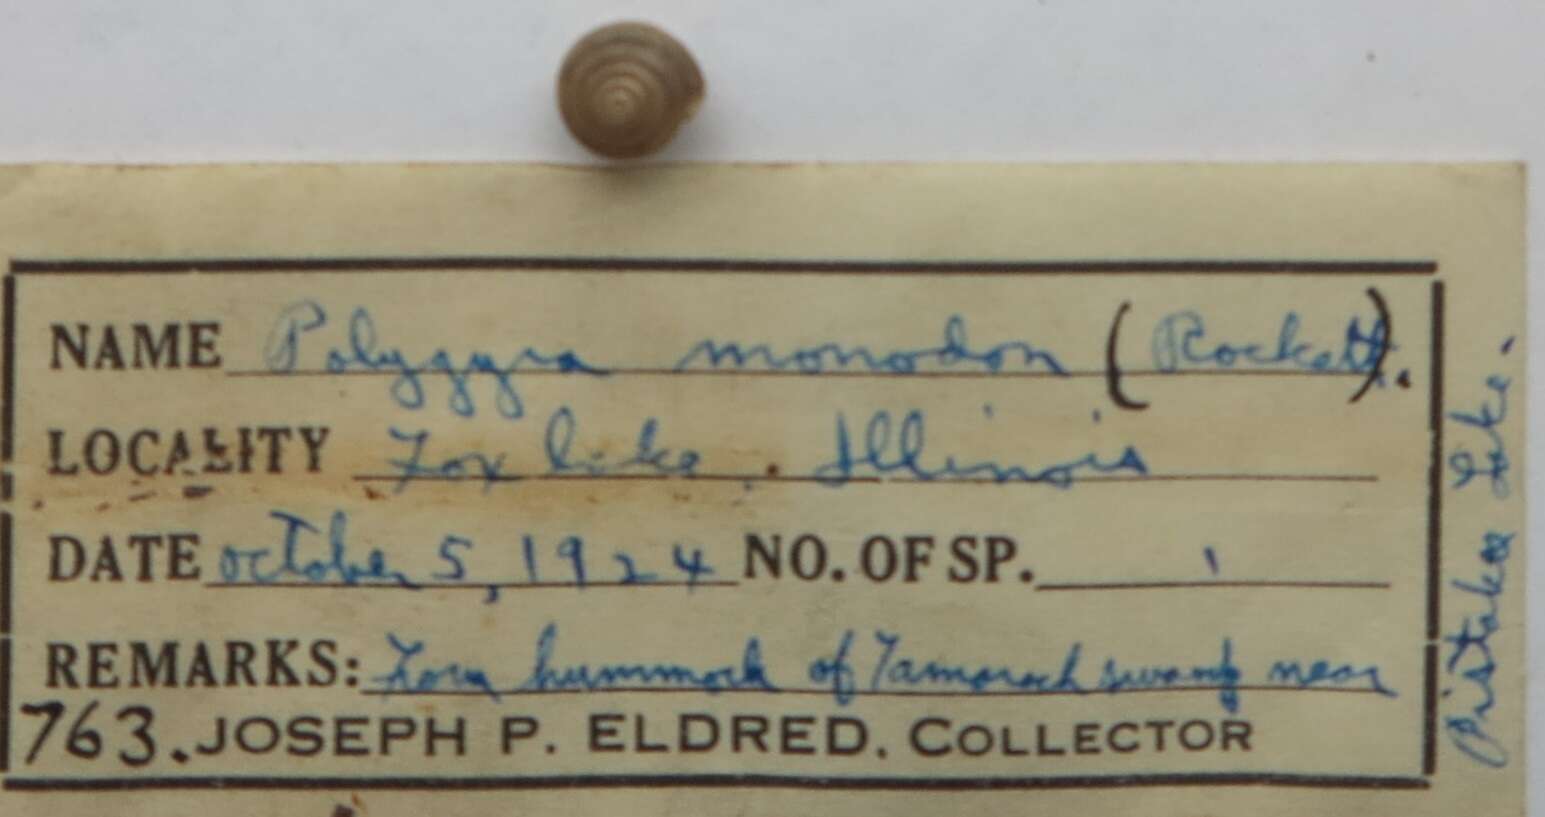 NAME Polygyra monodon (Rackett).
LOCALITY Fox Lake. Illinois
DATE October 5, 1924 NO. OF SP. 1
REMARKS: From hummock of Tamorack swamp near
Pistakee Lake.
763. JOSEPH P. ELDRED. COLLECTOR